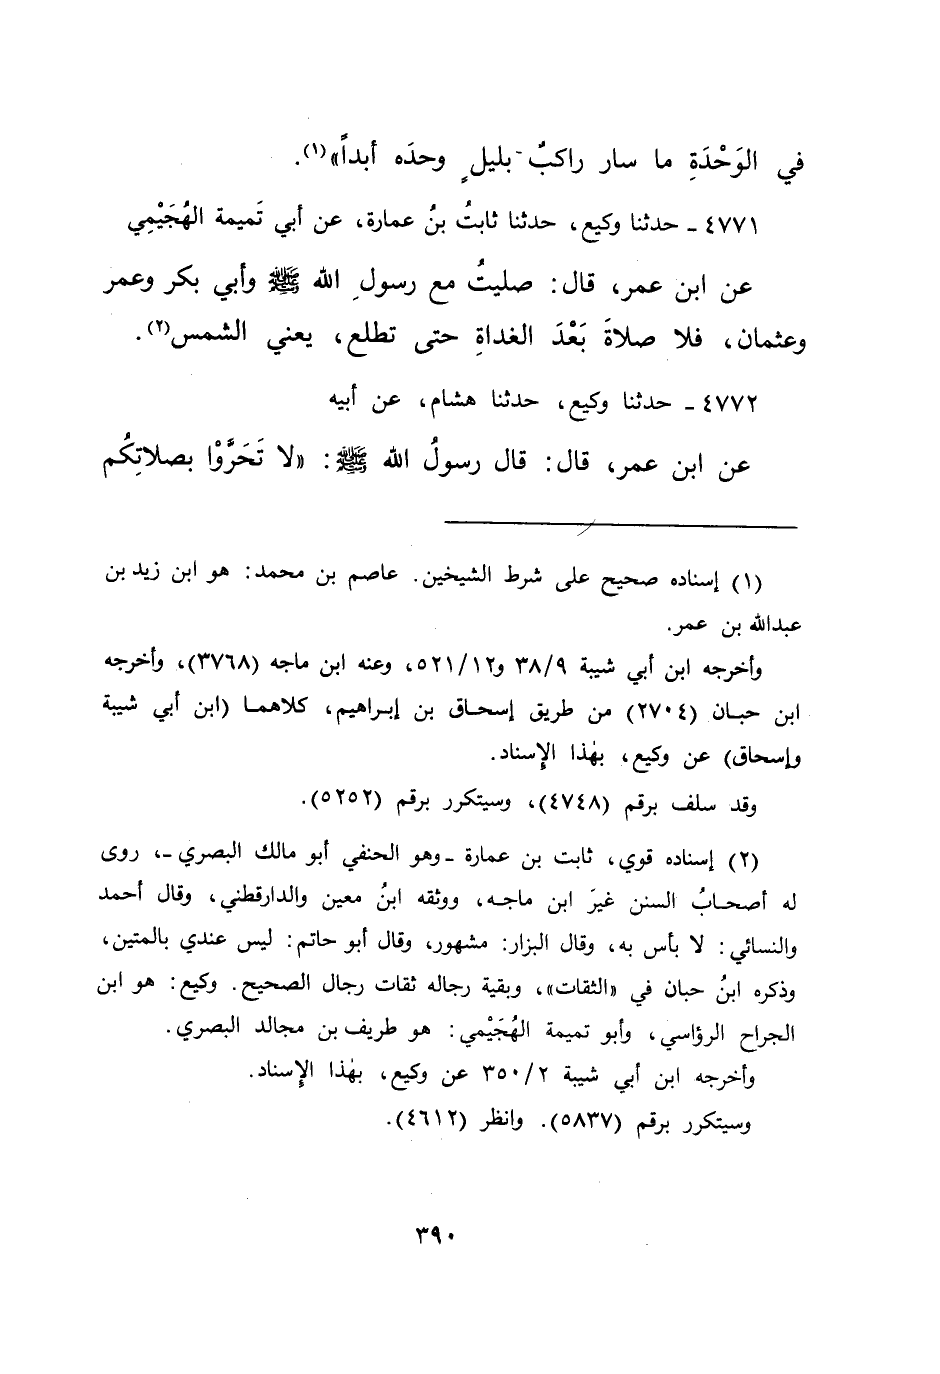 في الوَحْدَةِ ما سار راكبٌ بليلٍ وحدَه أبداً»(١).
٤٧٧١ ـ حدثنا وكيع، حدثنا ثابتُ بنُ عمارة، عن أبي تَميمة الهُجَيْمِي
عن ابن عمر، قال: صليتُ مع رسولِ الله ﷺ وأبي بكر وعمر
وعثمان، فلا صلاةَ بَعْدَ الغداةِ حتى تطلع، يعني الشمس(٢).
٤٧٧٢ ـ حدثنا وكيع، حدثنا هشام، عن أبيه
عن ابن عمر، قال: قال رسولُ الله ﷺ: «لا تَحَرَّوْا بصلاتِكُم
(١) إسناده صحيح على شرط الشيخين. عاصم بن محمد: هو ابن زيد بن
عبدالله بن عمر.
وأخرجه ابن أبي شيبة ٣٨/٩ و٥٢١/١٢، وعنه ابن ماجه (٣٧٦٨)، وأخرجه
ابن حبان (٢٧٠٤) من طريق إسحاق بن إبراهيم، كلاهما (ابن أبي شيبة
وإسحاق) عن وكيع، بهٰذا الإسناد.
وقد سلف برقم (٤٧٤٨)، وسيتكرر برقم (٥٢٥٢).
(٢) إسناده قوي، ثابت بن عمارة ـ وهو الحنفي أبو مالك البصري ـ، روى
له أصحابُ السنن غيرَ ابن ماجه، ووثقه ابنُ معين والدارقطني، وقال أحمد
والنسائي: لا بأس به، وقال البزار: مشهور، وقال أبو حاتم: ليس عندي بالمتين،
وذكره ابنُ حبان في «الثقات»، وبقية رجاله ثقات رجال الصحيح. وكيع: هو ابن
الجراح الرؤاسي، وأبو تميمة الهُجَيْمي: هو طريف بن مجالد البصري.
وأخرجه ابن أبي شيبة ٣٥٠/٢ عن وكيع، بهٰذا الإسناد.
وسيتكرر برقم (٥٨٣٧). وانظر (٤٦١٢).
٣٩٠